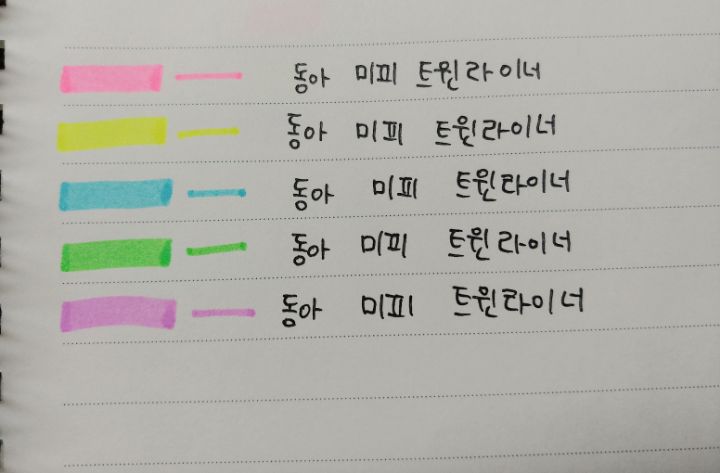 동아 미피 트윈라이너
동아 미피 트윈라이너
동아 미피 트윈라이너
동아 미피 트윈라이너
동아 미피 트윈라이너